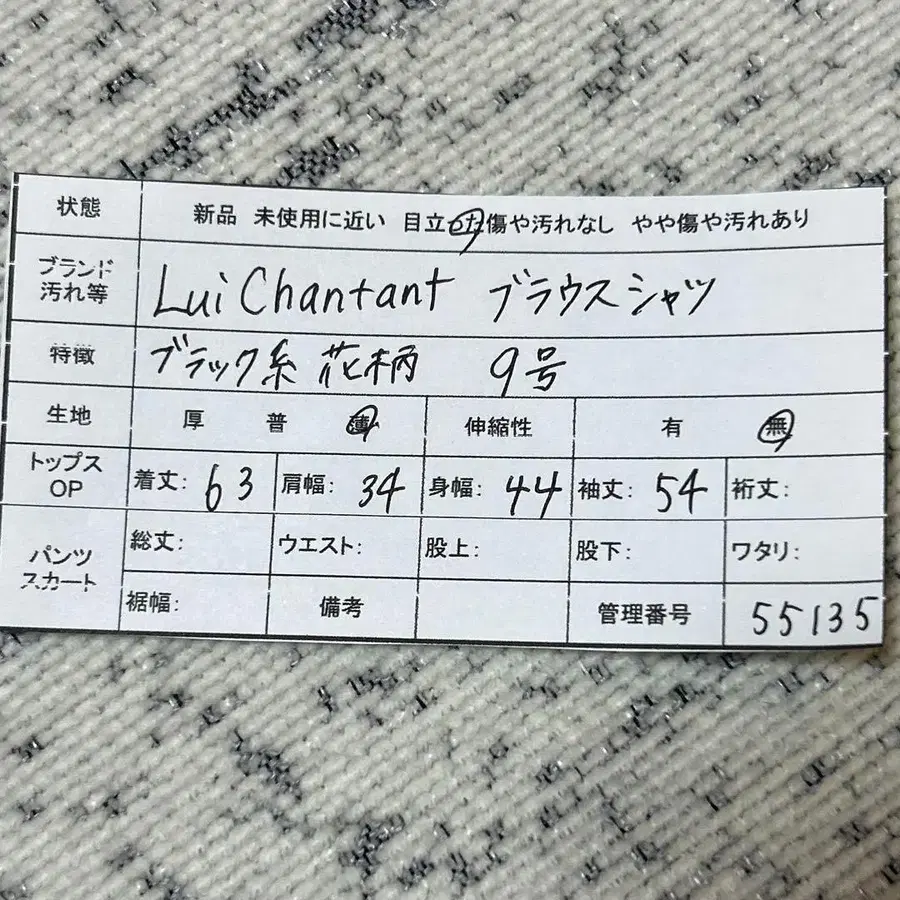 状態 新品 未使用に近い 目立った傷や汚れなし やや傷や汚れあり
ブランド
汚れ等 Lui Chantant ブラウスシャツ
特徴 ブラック系 花柄 9号
生地 厚 普 薄 伸縮性 有 無
トップス
OP 着丈: 63 肩幅: 34 身幅: 44 袖丈: 54 裄丈:
パンツ
スカート 総丈: ウエスト: 股上: 股下: ワタリ:
裾幅: 備考 管理番号 55135